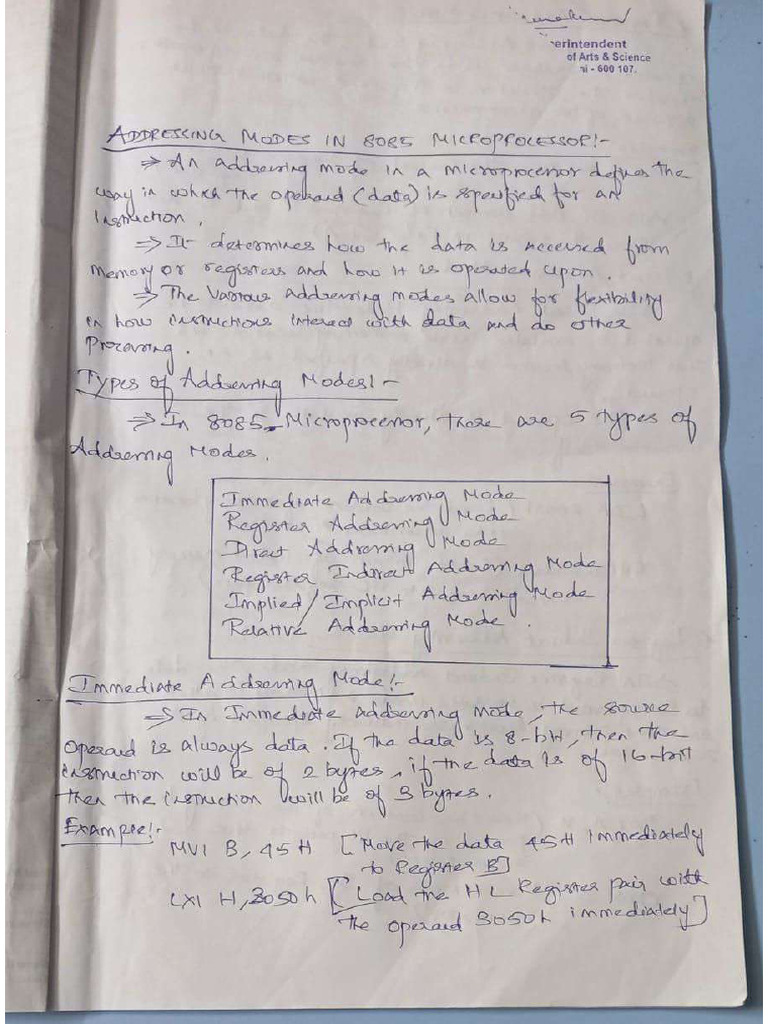 erintendent
of Arts & Science
ai - 600 107.
ADDRESSING MODES IN 8085 MICROPROCESSOR:-
⇒ An addressing mode in a microprocessor defines the
way in which the operand (data) is specified for an
Instruction.
⇒ It determines how the data is accessed from
memory or registers and how it is operated upon.
⇒ The Various addressing modes allow for flexibility
in how instructions interact with data and do other
Processing.
Types of Addressing Modes:-
⇒ In 8085 Microprocessor, there are 5 types of
Addressing Modes.
Immediate Addressing Mode
Register Addressing Mode
Direct Addressing Mode
Register Indirect Addressing Mode
Implied/Implicit Addressing Mode
Relative Addressing Mode.
Immediate Addressing Mode:-
⇒ In Immediate addressing mode, the source
operand is always data. If the data is 8-bit, then the
instruction will be of 2 bytes, if the data is of 16-bit
then the instruction will be of 3 bytes.
Example:-
MVI B, 45H [Move the data 45H immediately
to Register B]
LXI H, 3050h [Load the HL Register pair with
the operand 3050h immediately]